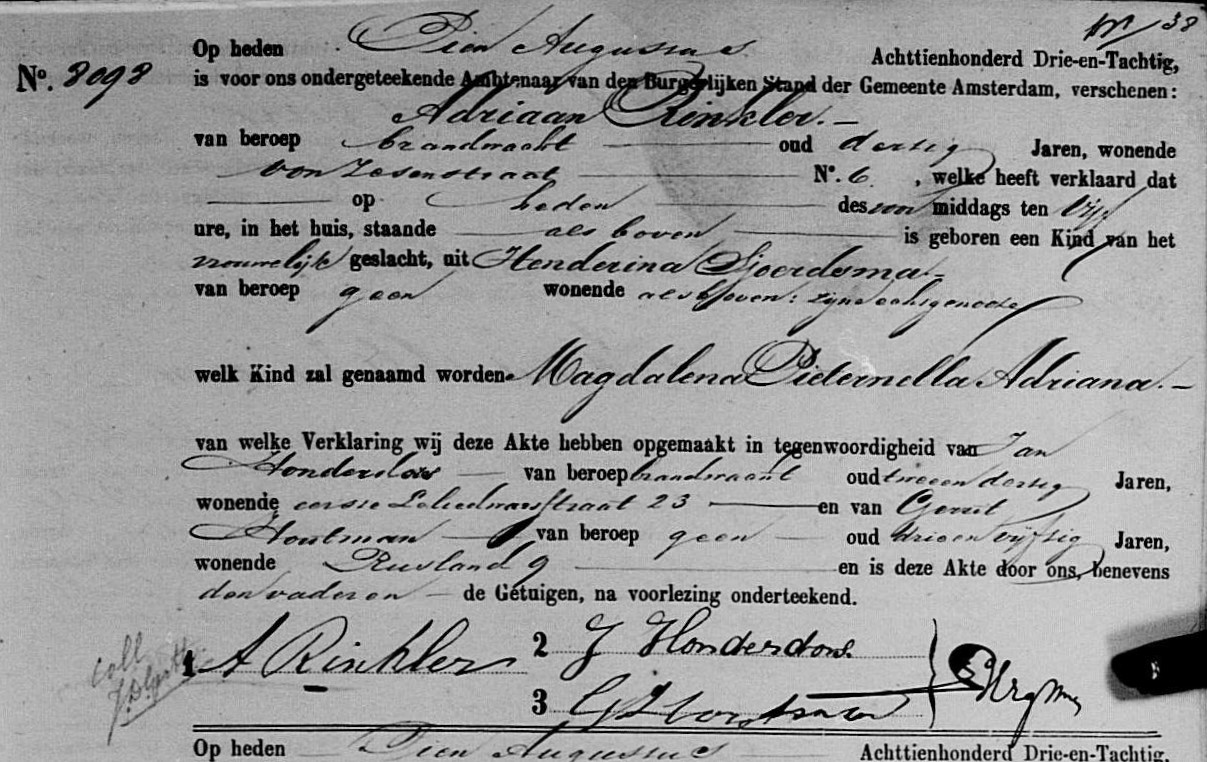 38
Op heden Tien Augustus Achttienhonderd Drie-en-Tachtig,
No. 8098 is voor ons ondergeteekende Ambtenaar van den Burgerlijken Stand der Gemeente Amsterdam, verschenen:
Adriaan Rinkler.
van beroep brandwacht oud dertig Jaren, wonende
No. 6, welke heeft verklaard dat
op heden des voor middags ten vijf
ure, in het huis, staande als boven is geboren een Kind van het
vrouwelijk geslacht, uit Henderina Sjoerdsma
van beroep geen wonende als boven: zijne echtgenoote
welk Kind zal genaamd worden Magdalena Pieternella Adriana.
van welke Verklaring wij deze Akte hebben opgemaakt in tegenwoordigheid van Jan
Honderdos van beroep brandwacht oud tweeendertig Jaren,
wonende eerste straat 23 en van Gerrit
Houtman van beroep geen oud drieenvijftig Jaren,
wonende Rusland 9 en is deze Akte door ons, benevens
den vader en de Getuigen, na voorlezing onderteekend.
1 A Rinkler 2 J Honderdos
3 G Houtman
Op heden Tien Augustus Achttienhonderd Drie-en-Tachtig,